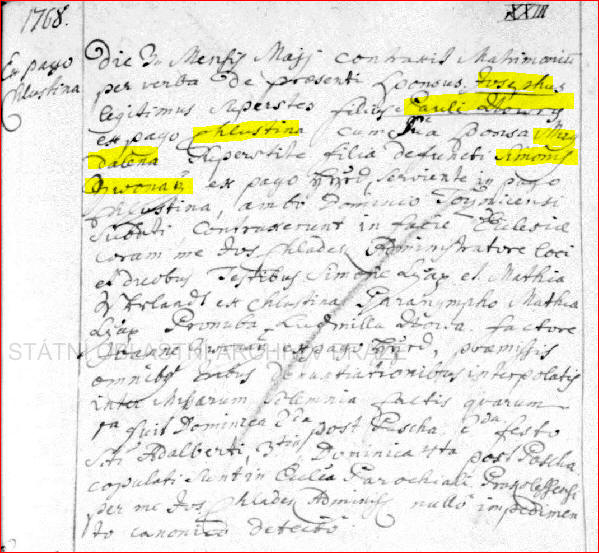 1768.
XXIII
Ex pago
Chlustina
Die 3tia Mensis Maji contraxit Matrimonium
per verba de praesenti Sponsus Josephus
legitimus Superstes filius Pauli
ex pago Chlustina cum Sua Sponsa Mag
dalena Superstite filia defuncti Simonis
ex pago serviente in pago
Chlustina, ambi Dominio Toÿnicensi
Subditi contraxerunt in facie Ecclesiae
coram me Jos: Chlades Administratore loci
et duobus Testibus Simone et Mathia
ex Chlustina Paranympho Mathia
Pronuba Ludmilla factore
Joanne ex pago praemissis
omnibus tribus denuntiationibus interpolatis
inter Missarum Solemnia factis quarum
1ma fuit Dominica 2da post Pascha 2da festo
Sti Adalberti, 3tia Dominica 4ta post Pascha
copulati sunt in Ecclea Parochiali
per me Jos: Chlades Adminis: nullo impedimen
to canonico detecto.
STÁTNÍ OBLASTNÍ ARCHIV V PRAZE